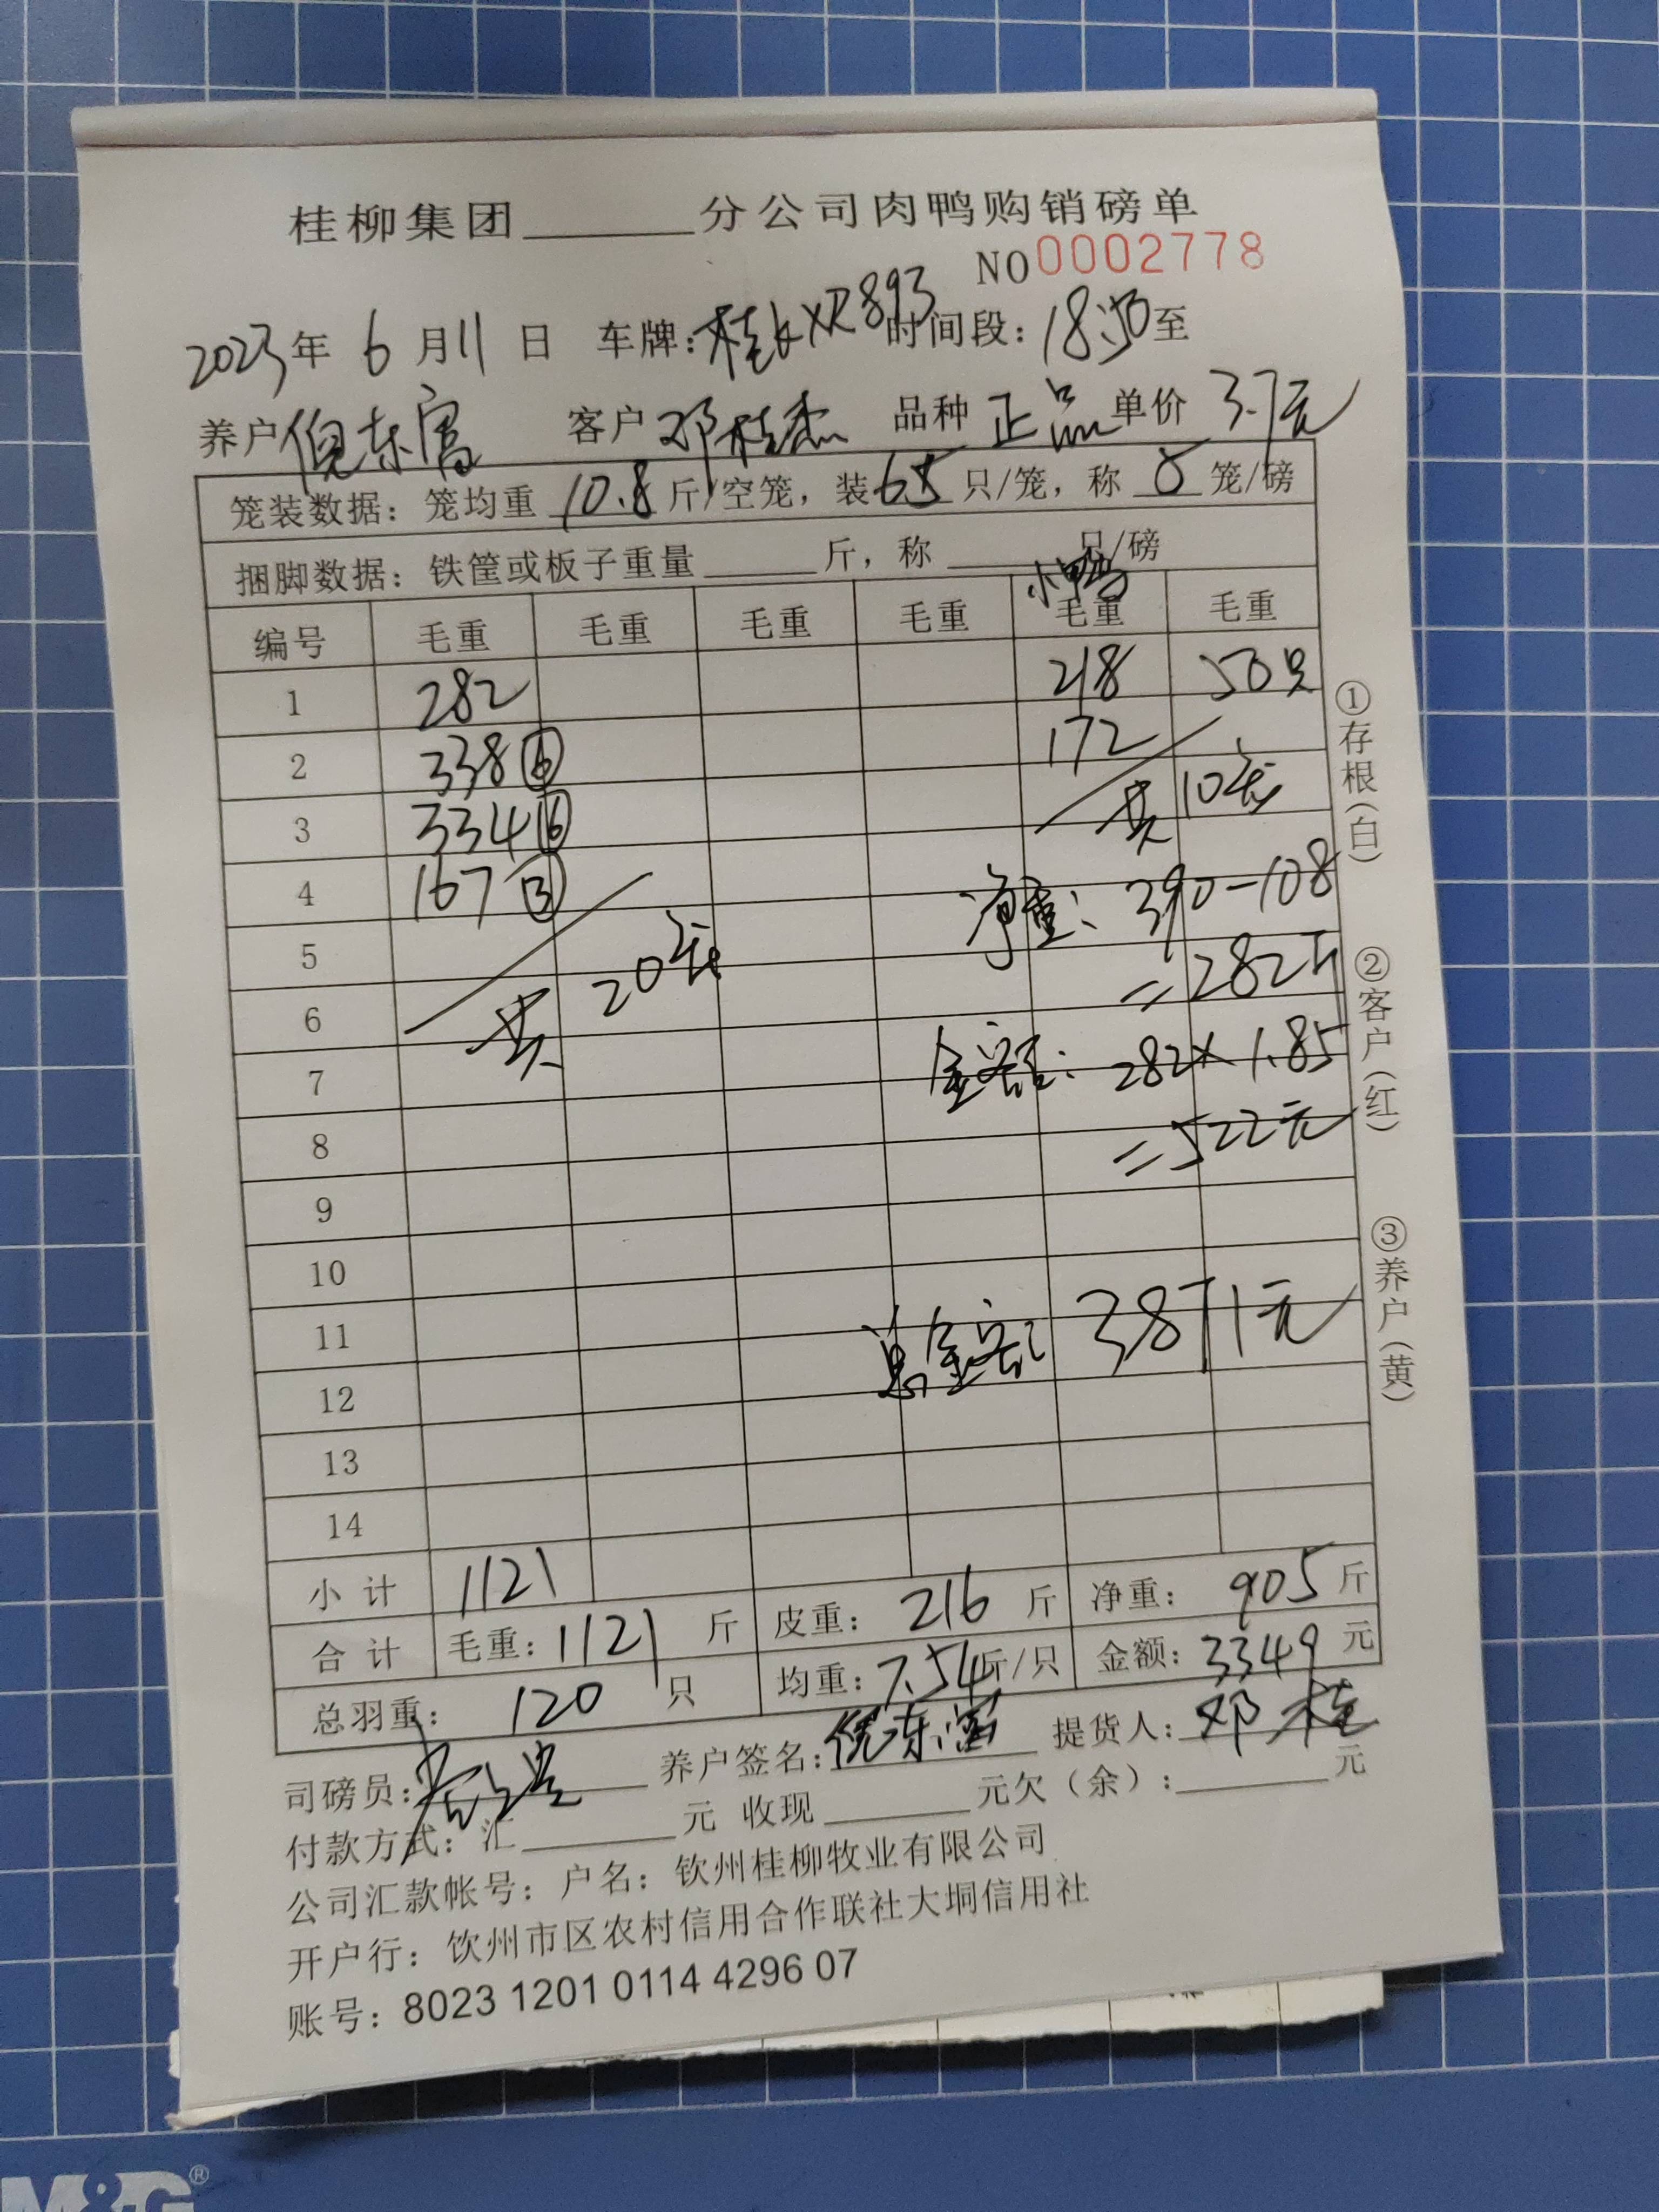 桂柳集团______分公司肉鸭购销磅单
NO 0002778
2023年 6 月 11 日 车牌: 桂 XR893 时间段: 18:50 至
养户 倪东富 客户 邓桂杰 品种 正品 单价 3.7元
笼装数据: 笼均重 10.8 斤/空笼, 装 6.5 只/笼, 称 5 笼/磅
捆脚数据: 铁筐或板子重量______斤, 称______只/磅
小鸭
编号 毛重 毛重 毛重 毛重 毛重 毛重
1 282 218 50只
2 338 ⑥ 172
3 334 ⑥ 共 10笼
4 167 ③ 净重: 390-108
5 共 20笼 =282斤
6
7 金额: 282×1.85
8 =522元
9
10
11 总金额: 3871元
12
13
14
小计 1121
合计 毛重: 1121 斤 皮重: 216 斤 净重: 905 斤
总羽重: 120 只 均重: 7.54 斤/只 金额: 3349 元
司磅员: 养户签名: 倪东富 提货人: 邓桂
付款方式: 汇______元 收现______元欠(余):______元
公司汇款帐号: 户名: 钦州桂柳牧业有限公司
开户行: 钦州市区农村信用合作联社大垌信用社
账号: 8023 1201 0114 4296 07
①存根(白)
②客户(红)
③养户(黄)
M&G®